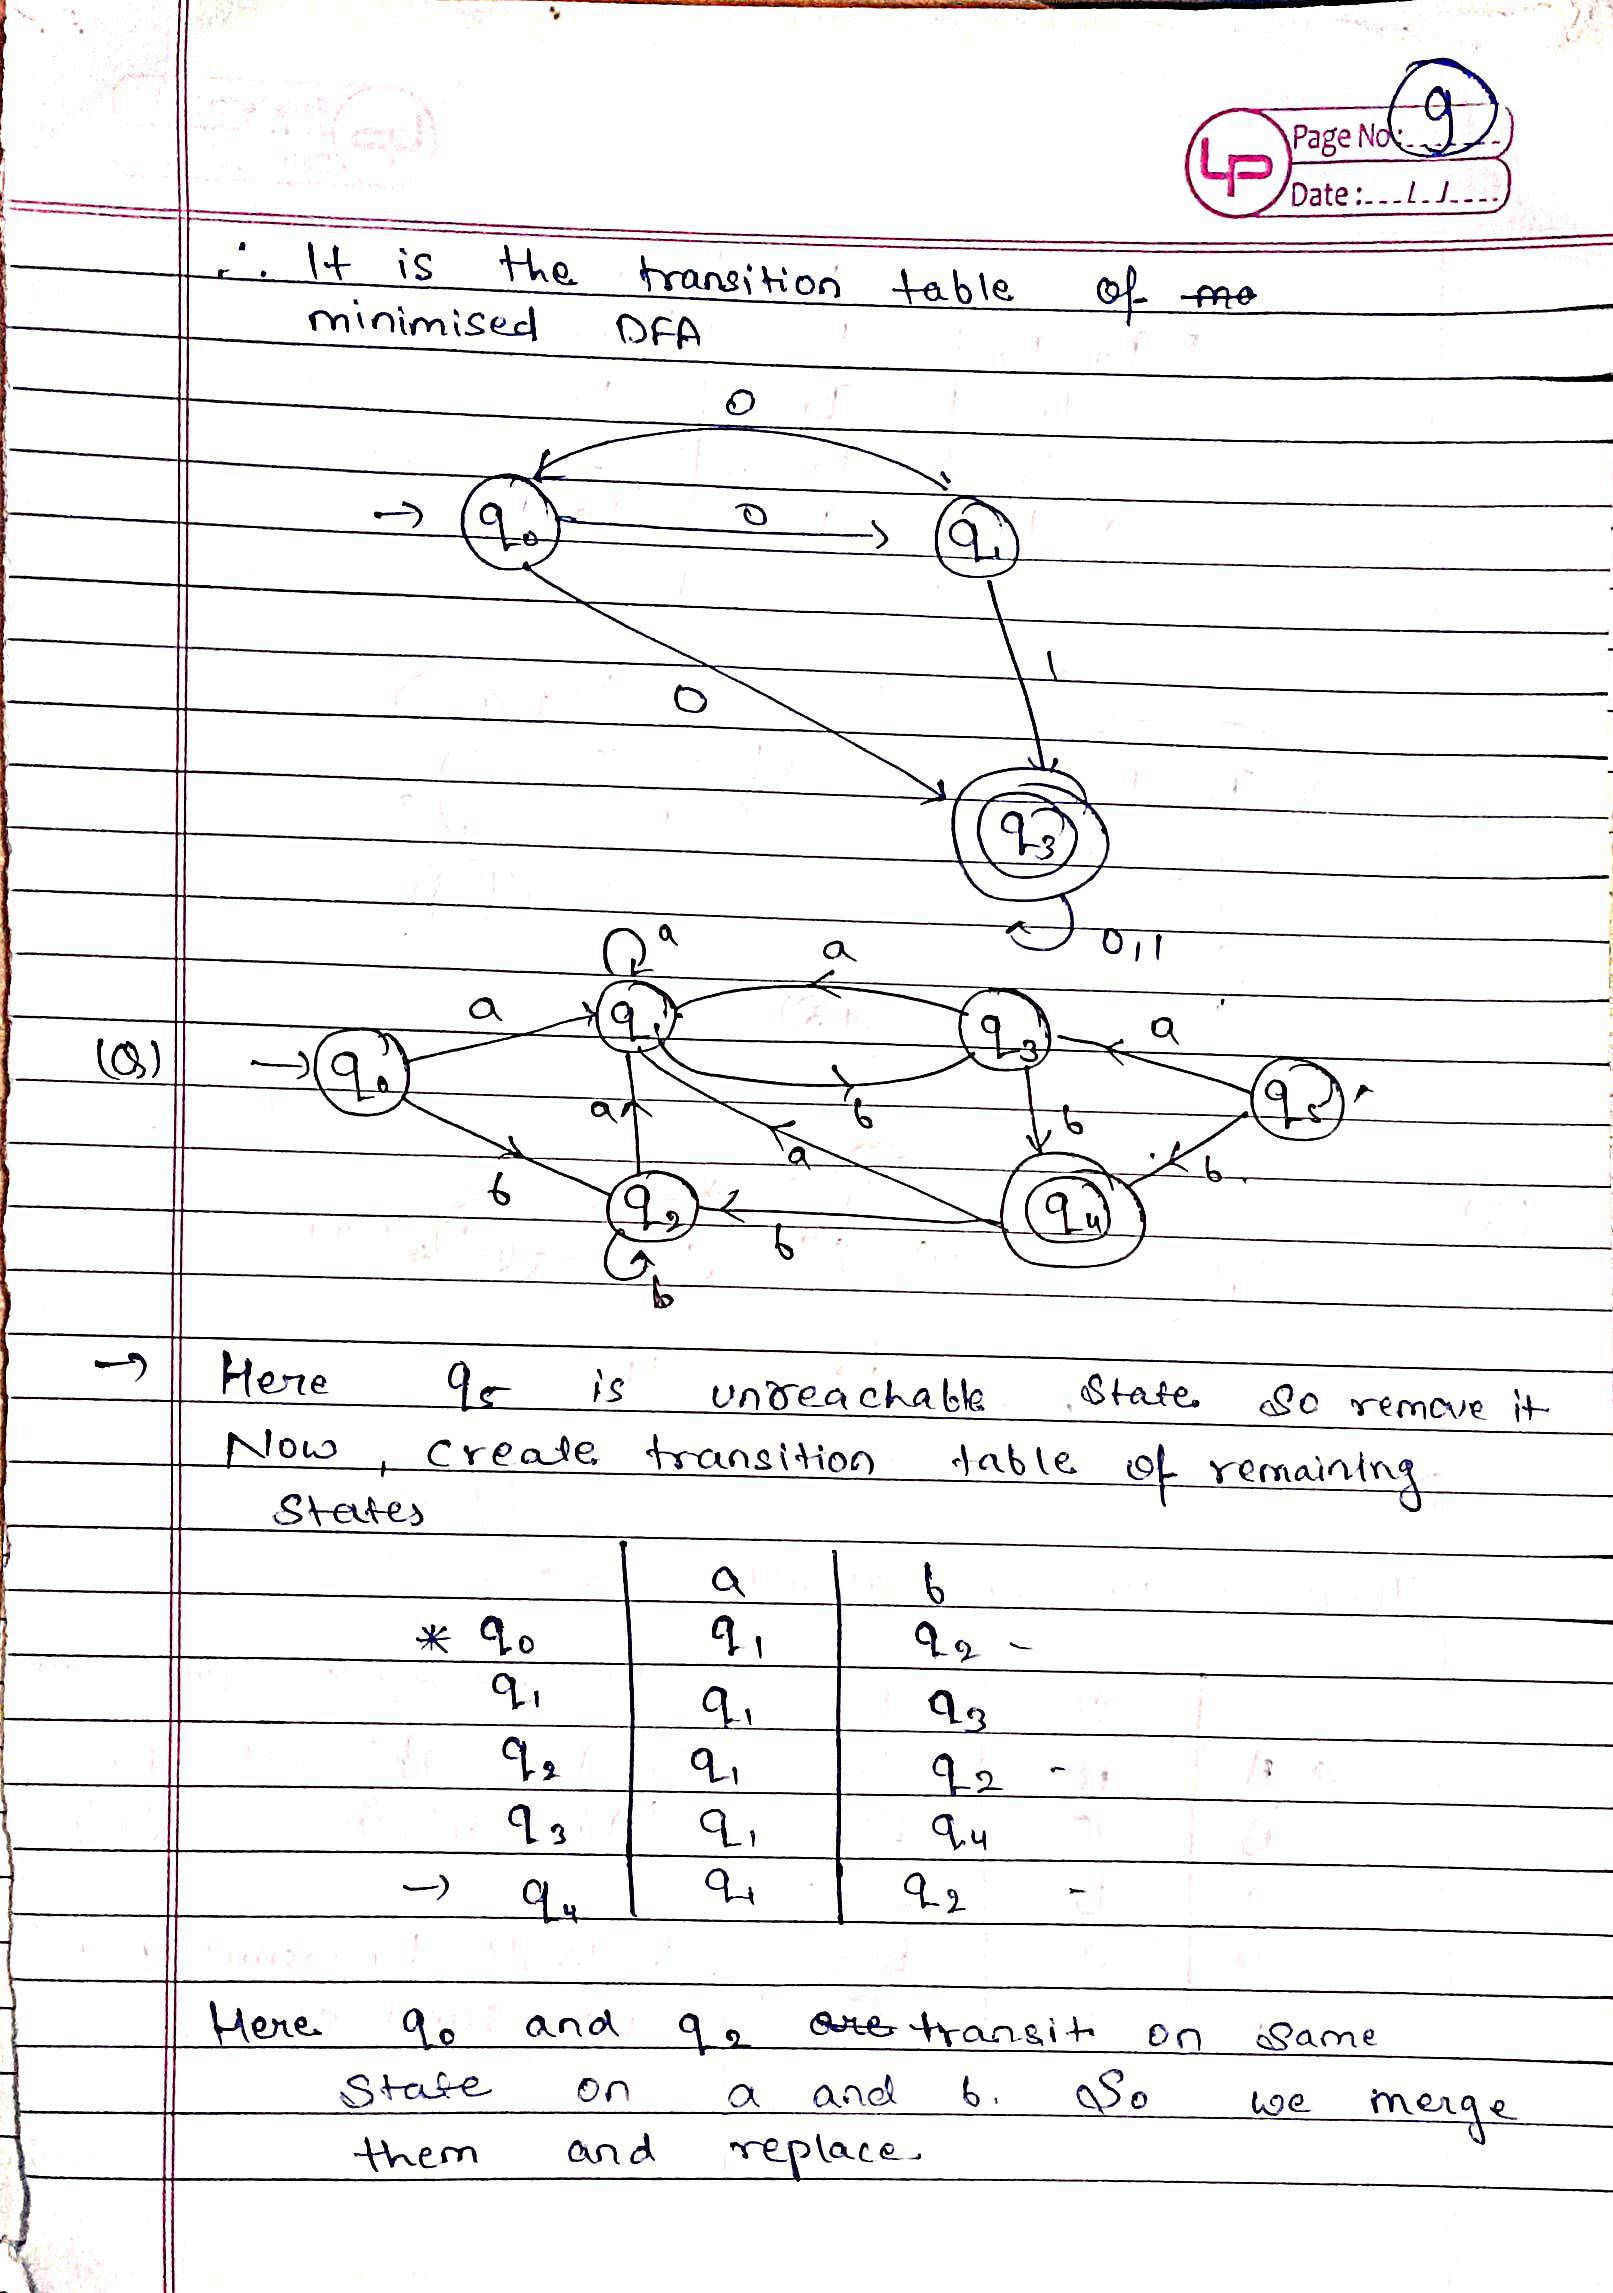 LP
Page No: 9
Date: / /
∴ It is the transition table of mo
minimised DFA
0
→ q0 0 q1
1
0
q3
0,1
a
a
a
q1 q3 a
(Q) → q0 q5
a b b
a b
b q2 q4
b
b
→ Here q5 is unreachable state so remove it
Now, create transition table of remaining
states
a b
* q0 q1 q2 -
q1 q1 q3
q2 q1 q2 -
q3 q1 q4
→ q4 q1 q2 -
Here q0 and q2 are transit on same
state on a and b. So we merge
them and replace.